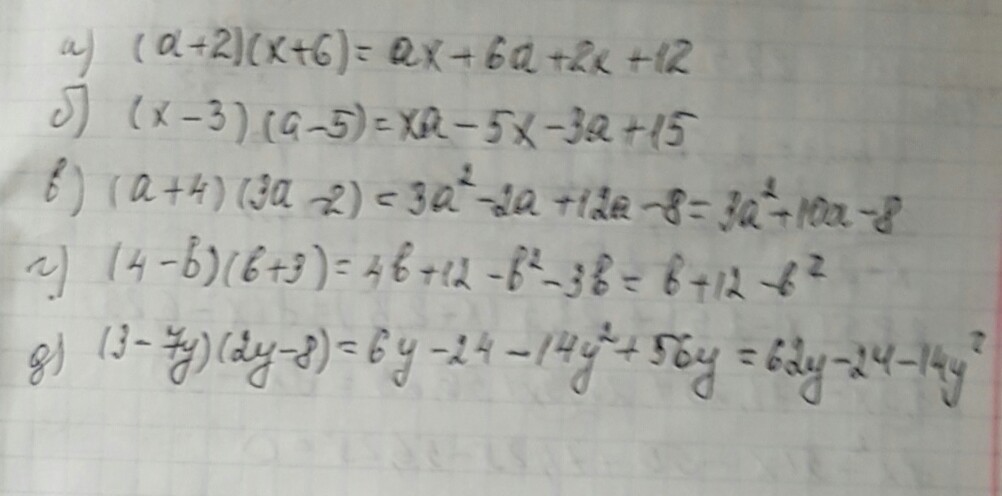 а) (a+2)(x+6)= ax+6a+2x+12
б) (x-3)(a-5)=xa-5x-3a+15
в) (a+4)(3a-2)=3a²-2a+12a-8=3a²+10a-8
г) (4-b)(b+3)=4b+12-b²-3b=b+12-b²
д) (3-7y)(2y-8)=6y-24-14y²+56y=62y-24-14y²